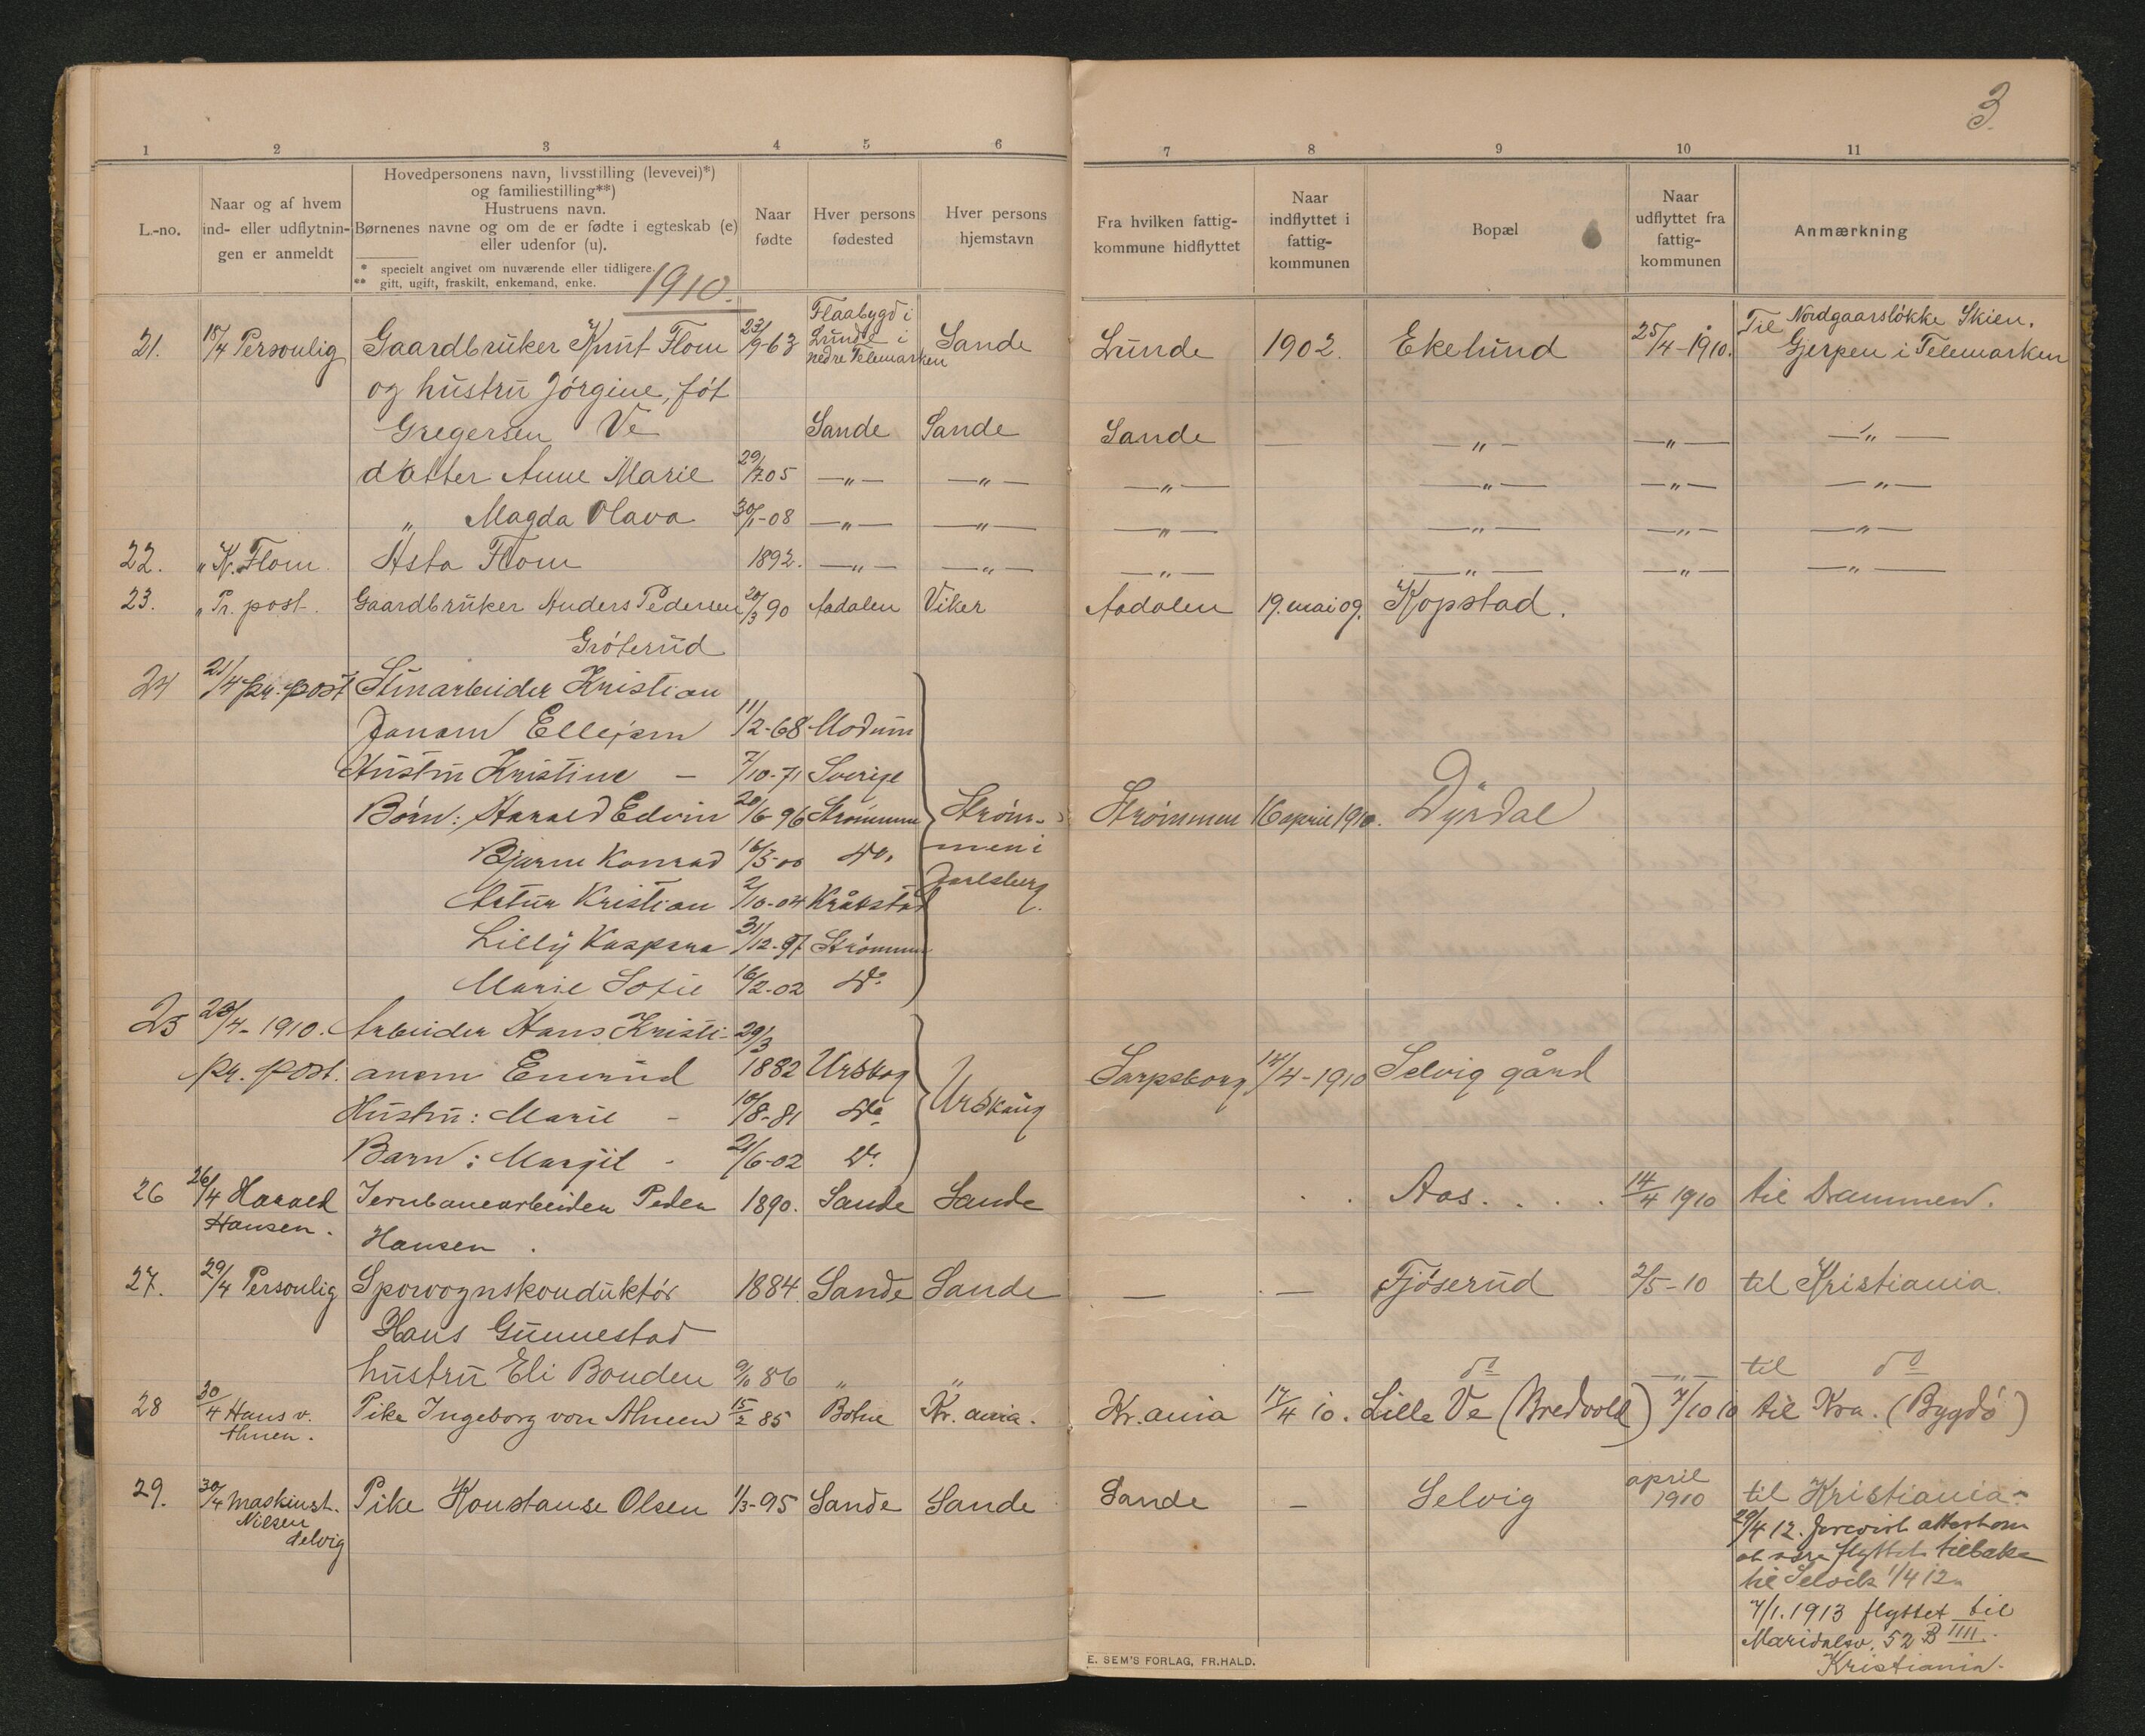 3
1 2 3 4 5 6 7 8 9 10 11
L.-no.
Naar og af hvem
ind- eller udflytnin-
gen er anmeldt
Hovedpersonens navn, livsstilling (levevei)*)
og familiestilling**)
Hustruens navn.
Børnenes navne og om de er fødte i egteskab (e)
eller udenfor (u).
* specielt angivet om nuværende eller tidligere.
** gift, ugift, fraskilt, enkemand, enke.
Naar
fødte
Hver persons
fødested
Hver persons
hjemstavn
Fra hvilken fattig-
kommune hidflyttet
Naar
indflyttet i
fattig-
kommunen
Bopæl
Naar
udflyttet fra
fattig-
kommunen
Anmærkning
1910.
Flaabygd i
Lunde i
nedre Telemarken
21. 18/4 Personlig Gaardbruker Knut Flom 23/9-63 Sande Lunde 1902. Ekelund 25/4-1910. Til Nordgaarsløkke Skien.
Gjerpen i Telemarken
og hustru Jørgine, føt
Gregersen Ve Sande Sande Sande — —„— —„— —„—
datter Anne Marie 29/7-05 —„— —„— —„— —„— —„— —„—
„ Magda Olava 30/1-08 —„— —„— —„— —„— —„— —„—
22. „ K. Flom Asta Flom 1892. —„— —„— —„— —„— —„— —„—
23. „ Pr. post. Gaardbruker Anders Pedersen 20/3 90 Aadalen Viker Aadalen 19. mai 09. Kopstad.
Grøterud
24 21/4 pr. post Stenarbeider Kristian
Jansen Ellefsen 11/2-68 Modum
Hustru Kristine — 7/10-71 Sverige
Børn: Harald Edvin 20/6-96 Strømmen Strøm- Strømmen 16 april 1910. Dyrdal
Bjarne Konrad 16/3-00 Do. men i
Artur Kristian 2/10-04 Kråkstad Jarlsberg.
Lilly Kaspara 31/12-97 Strømmen
Marie Sofie 16/2-02 Do
25 23/4-1910. Arbeider Hans Kristi- 29/3
pr. post. ansen Enerud 1882 Urskog Sarpsborg 14/4-1910 Selvig gård
Hustru: Marie — 10/8-81 Do Urskaug
Barn: Margit - 21/6-02 Do.
26 26/4 Harald Jernbanearbeider Peder 1890. Sande Sande Aas. 14/4 1910 til Drammen.
Hansen. Hansen.
27. 29/4 Personlig Sporvognskonduktør 1884. Sande Sande — — Fjøserud 2/5-10 til Kristiania.
Hans Gunnestad
hustru Eli Bonden 9/10 86 „ „ do —„— til do
28 30/4 Hans v. Pike Ingeborg von Ahnen 15/2 85 Botne Kr.ania. Kr.ania 17/4 10. Lille Ve (Bredvold) 7/10 10 til Kra. (Bygdø)
Ahnen.
29. 30/4 Maskinst. Pike Konstanse Olsen 1/3-95 Sande Sande Sande — Selvig april 1910 til Kristiania.
Nilsen
Selvig
29/4 12. forevist attest om
at være flyttet tilbake
til Selvik 1/4 12.
7/1. 1913 flyttet til
Maridalsv. 52 B IIII.
Kristiania.
E. SEM'S FORLAG, FR.HALD.